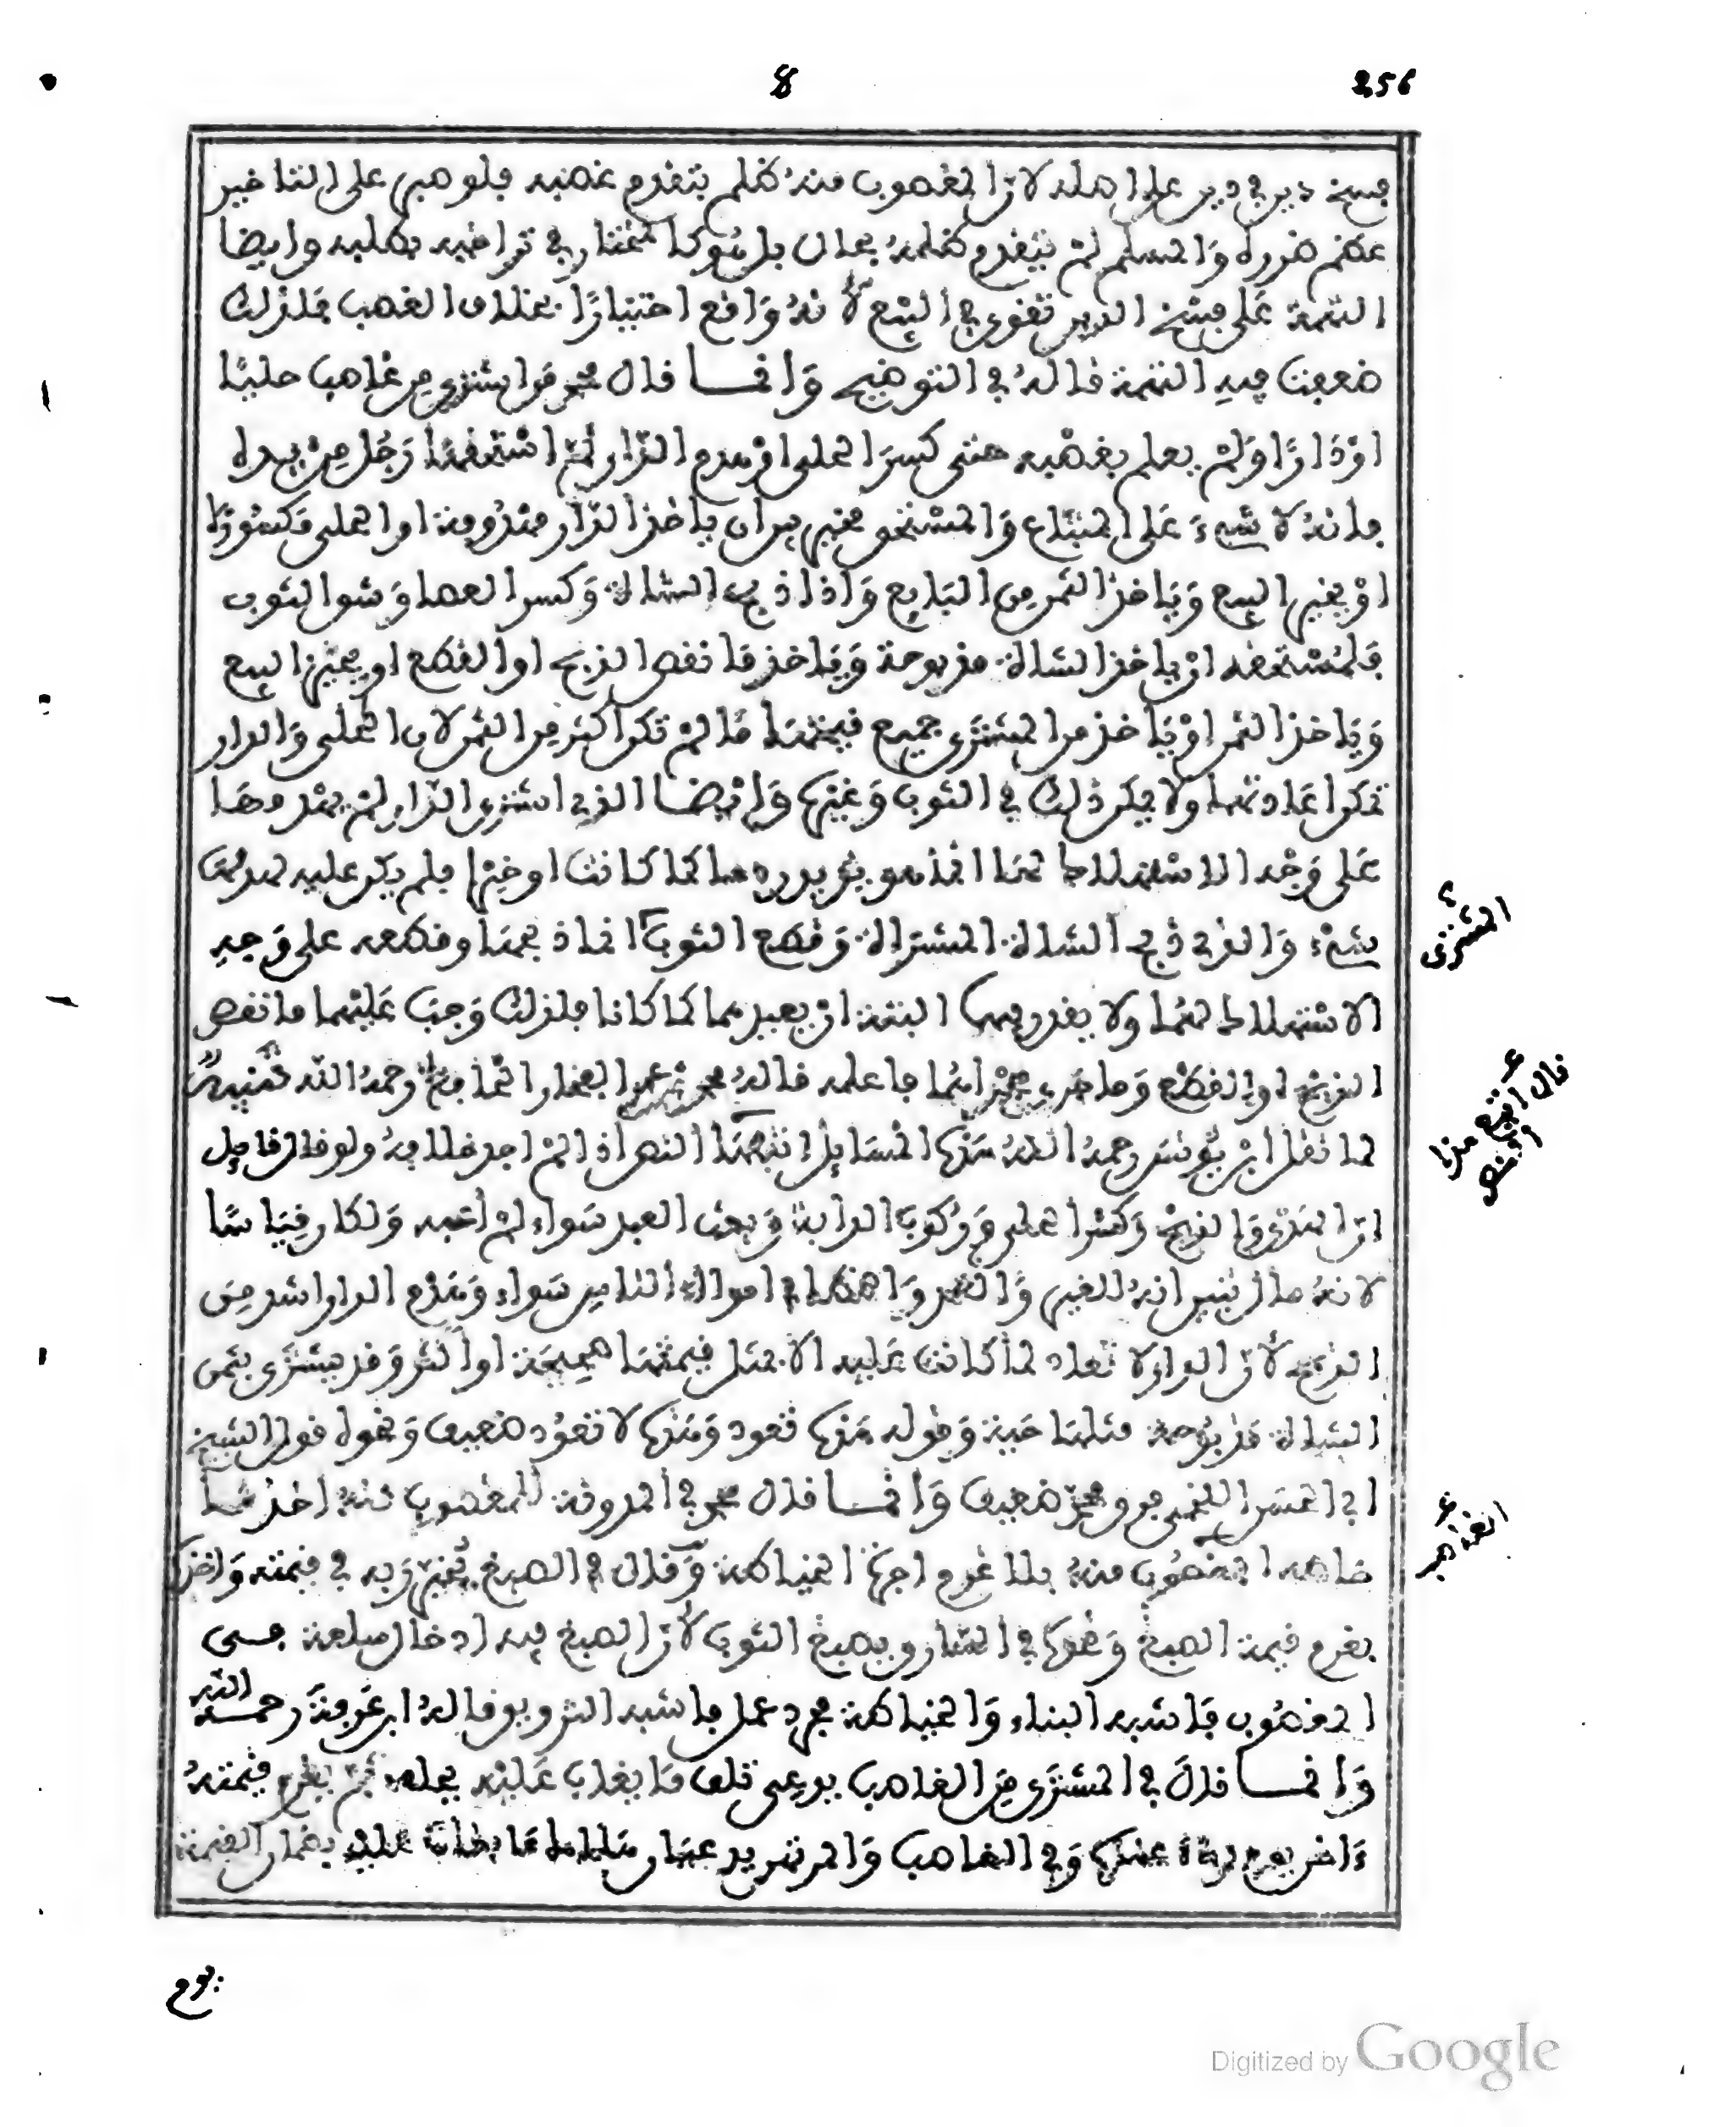 256
8
فسخ دين في دين على اهله لان المغصوب منه ظلم بتقدم غصبه فلو صبر على التاخير
عظم ضرره والمسلم لم يتقدم ظلمه بحال بل هو كالمختار في تراخيه بطلبه وايضا
التهمة على فسخ الدين تقوى في البيع لانه واقع اختيارا بخلاف الغصب فلذلك
ضعفت فيه التهمة قاله في التوضيح وانما قال محمد فمن اشترى من غاصب حليا
او دارا ولم يعلم بغصبه حتى كسر الحلي او هدم الدار ثم استحقها رجل من يده
فانه لا شيء على المبتاع والمستحق مخير بين ان ياخذ الدار مهدومة او الحلي مكسورا
او يجيز البيع وياخذ الثمن من البايع واذا ذبح الشاة وكسر العصا وشق الثوب
فلمستحقه ان ياخذ الشاة مذبوحة وياخذ ما نقص الذبح او القطع او يجيز البيع
وياخذ الثمن او ياخذ من المشتري جميع قيمتها ما لم تكن اكثر من الثمن لان الحلي والدار
تمكن اعادتهما ولا يمكن ذلك في الثوب وغيره وايضا الذي اشترى الدار لم يهدمها
على وجه الاستهلاك لها انما هو يريد ردها كما كانت او خيرا فلم يكن عليه لهدمها
شيء والذي ذبح الشاة المشتراة وقطع الثوب انما ذبحها وقطعه على وجه
الاستهلاك لهما ولا يقدر فيهما البتة ان يعيدهما كما كانا فلذلك وجب عليهما ما نقص
الذبح او القطع وما جرى مجراهما فاعلمه قاله محمد بن عبد الغفار رحمه الله تنبيه
لما نقل ابن يونس رحمه الله هذه المسايل اتبعها النص اذ لم اجد خلافه ولو قال قايل
ان الهدم والذبح وكسر الحلي وركوب الدابة وبعث العبد سواء لم اعبه ولكان قياسا
لانه ما ان تبين انه للغير والعمد والخطا في اموال الناس سواء وهدم الدار اشد من
الذبح لان الدار لا تعاد لما كانت عليه الا بمثل قيمتها صحيحة او اكثر وقد يشترى بثمن
الشاة مذبوحة مثلها حية وقوله هذه تعود وهذه لا تعود ضعيف ونحوه قول الشيخ
ابي الحسن اللخمي ضعيف وانما قال محمد في المدونة للمغصوب منه اخذ
المغصوب منه بلا غرم اجرة الخياطة وقال في الصبغ يخير ربه في قيمته واخذه
بغرم قيمة الصبغ ونحوه في السارق يصبغ الثوب لان الصبغ فيه ادخال سلعة في
المغصوب فاشبه البناء والخياطة مجرد عمل فاشبه التزويق قاله ابن عرفة رحمه الله
وانما قال في المشتري من الغاصب يدعي تلف ما يغاب عليه يحلف ثم يغرم قيمته
وفي الغاصب والمرتهن يدعيان هلاك ما يغاب عليه يضمنان القيمة
المشتري
قال اتبع هذا النص
يوم
Digitized by Google